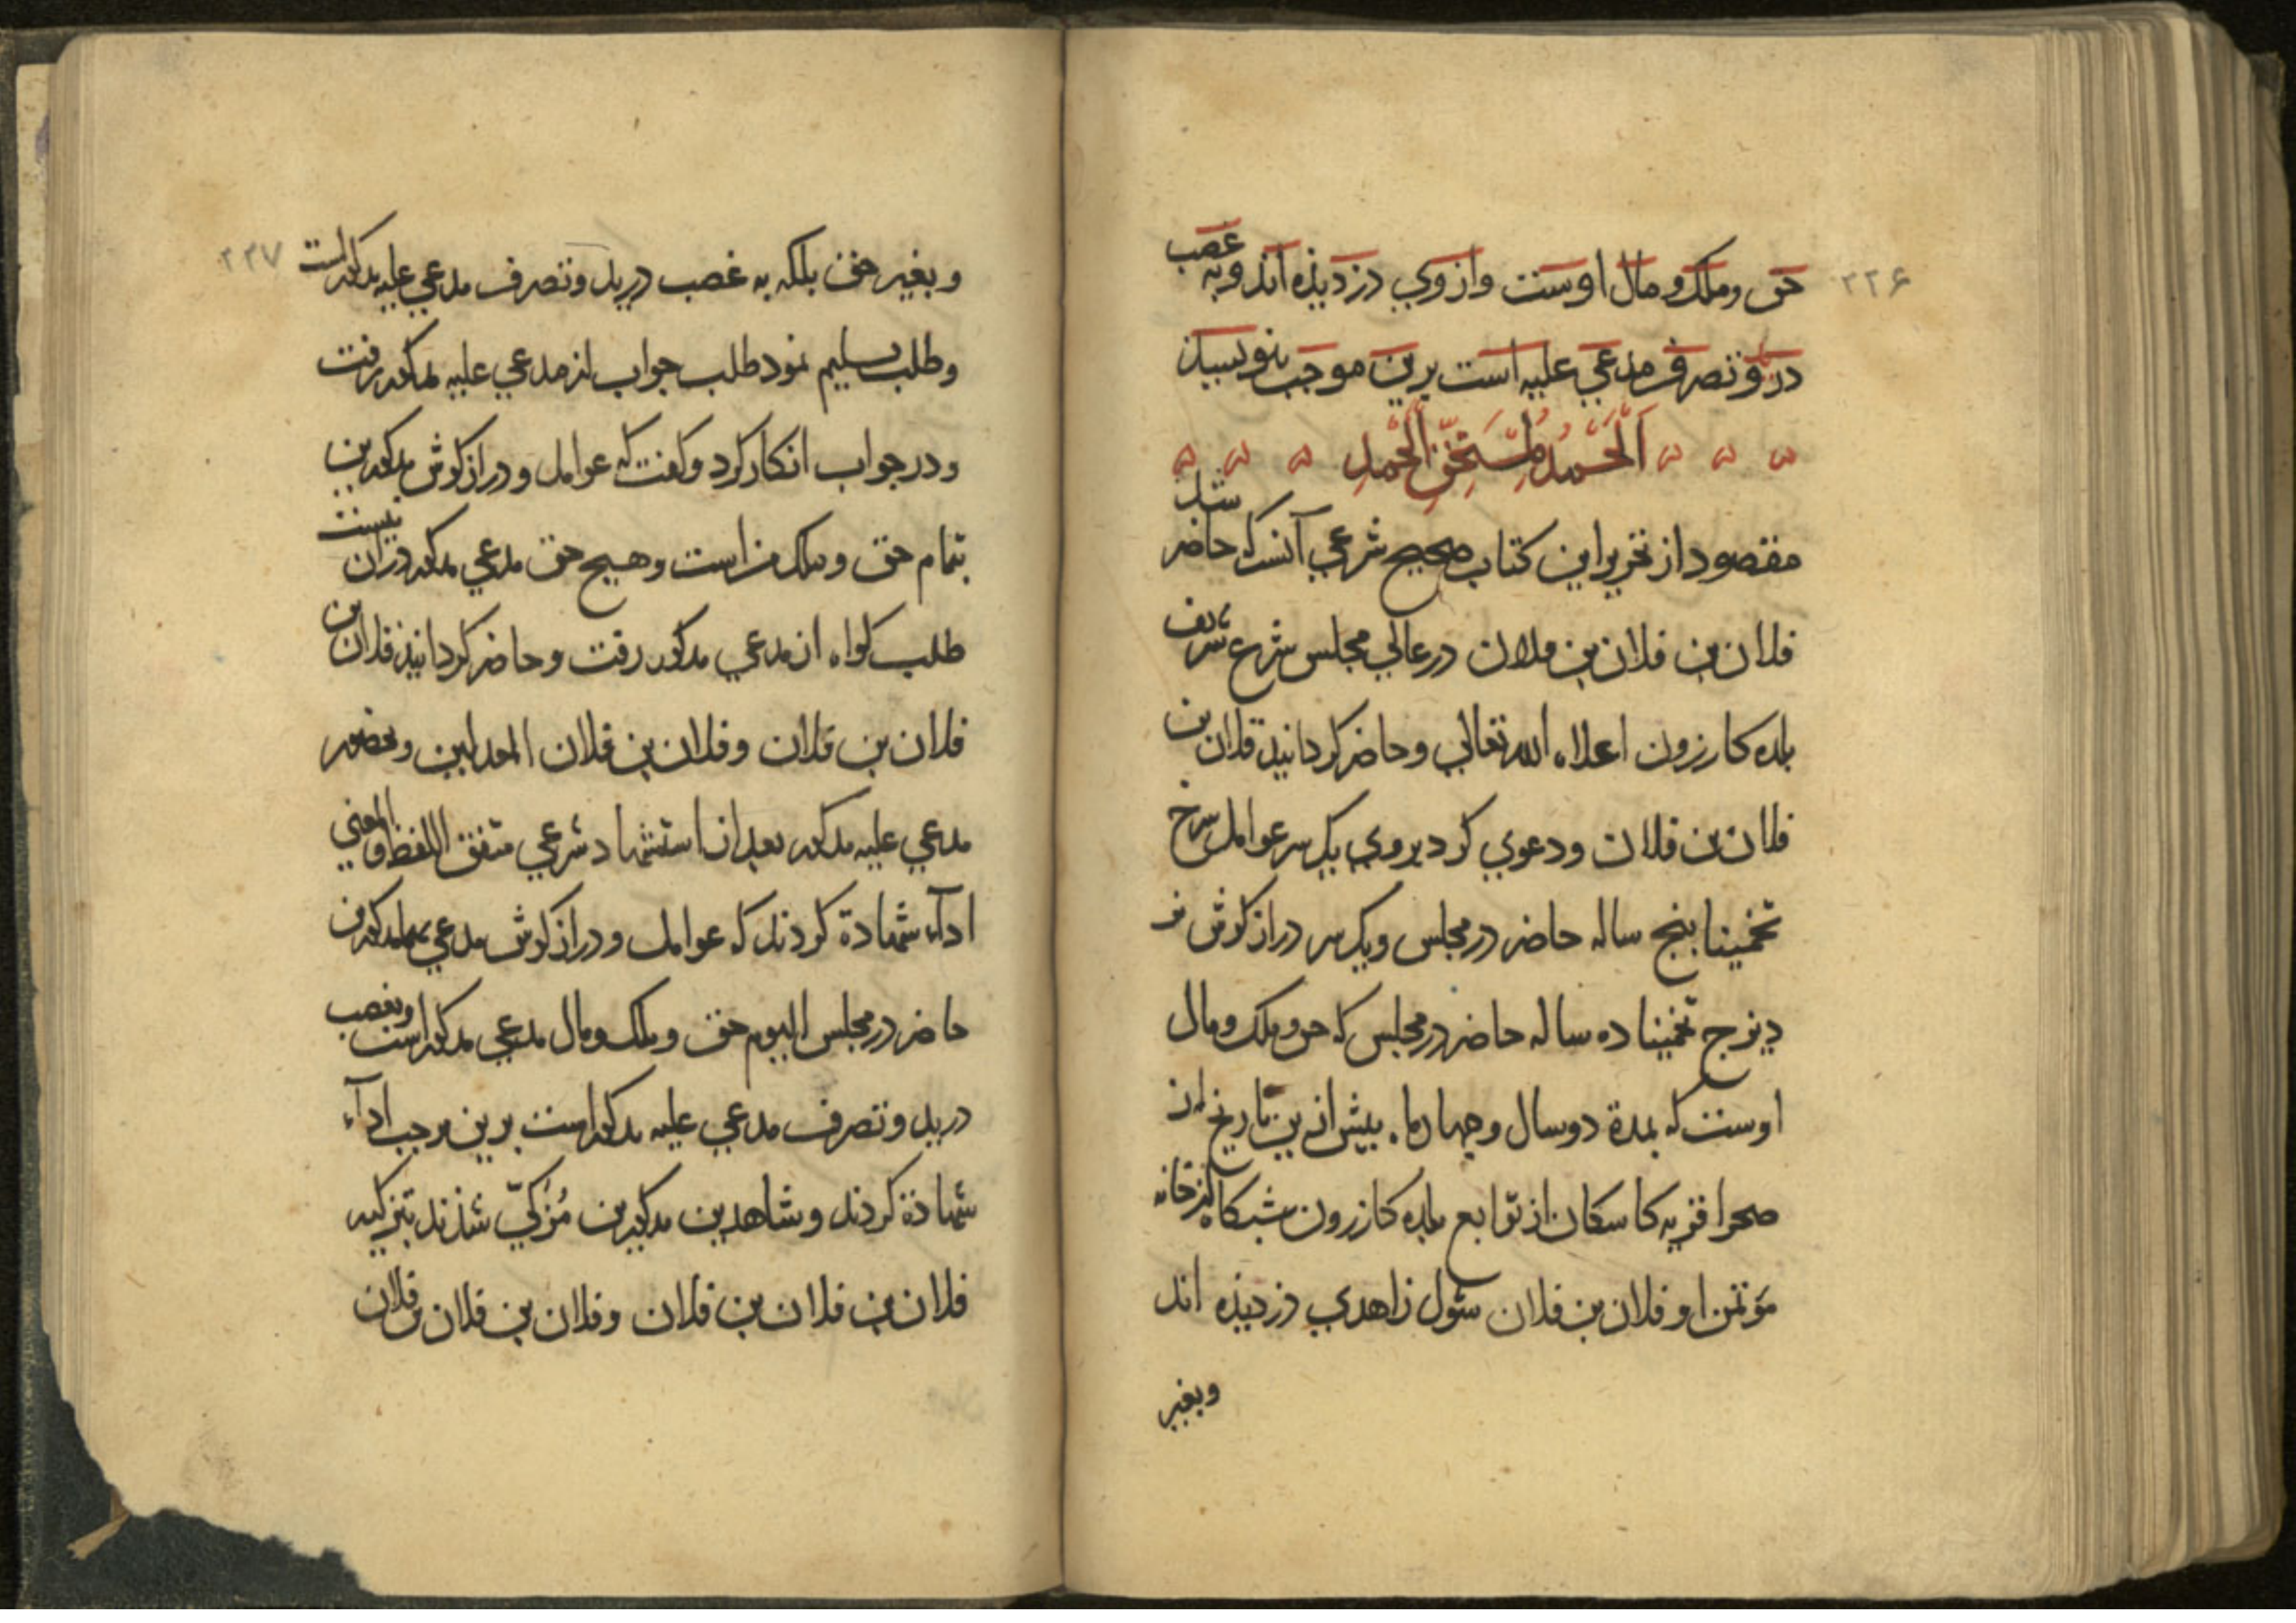 ۲۲۶
حق و ملک و مال اوست و از وي دزدیذه اند و به غصب
در ید و تصرف مدعي علیه است برین موجب بنویسید
اَلْحَمْدُ لِمُسْتَحِقِّ الْحَمْدِ
مقصود از تحریر این کتاب صحیح شرعي آنست که حاضر شد
فلان بن فلان بن فلان در عالي مجلس شرع شریف
بلده کازرون اعلاه الله تعالي و حاضر کردانید فلان بن
فلان بن فلان و دعوي کرد بروي بیک سر عوامل سرخ
تخمینا پنج ساله حاضر در مجلس و یک سر دراز کوش نر
دیزج تخمینا ده ساله حاضر در مجلس که حق و ملک و مال
اوست که بمدة دو سال و چهار ماه پیش ازین تاریخ از
صحرا قریه کاسکان از توابع بلده کازرون شبکاه
مؤتمن او فلان بن فلان سئول زاهدي دزدیذه اند
و بغیر
۲۲۷
و بغیر حق بلکه به غصب در ید و تصرف مدعي علیه مذکور است
و طلب تسلیم نمود طلب جواب از مدعي علیه مذکور رفت
و در جواب انکار کرد و کفت که عوامل و دراز کوش مذکورین
بتمام حق و ملک من است و هیچ حق مدعي مذکور در آن نیست
طلب کواه از مدعي مذکور رفت و حاضر کردانیذ فلان بن
فلان بن فلان و فلان بن فلان المعدلین و بحضور
مدعي علیه مذکور بعد از استشهاد شرعي متفق اللفظ و المعني
ادآء شهادة کردند که عوامل و دراز کوش مدعي بهما مذکورین
حاضر در مجلس الیوم حق و ملک و مال مدعي مذکور است و بغصب
در ید و تصرف مدعي علیه مذکور است برین موجب ادآء
شهادة کردند و شاهدین مذکورین مُزَکّيّ شذند بتزکیه
فلان بن فلان بن فلان و فلان بن فلان بن فلان